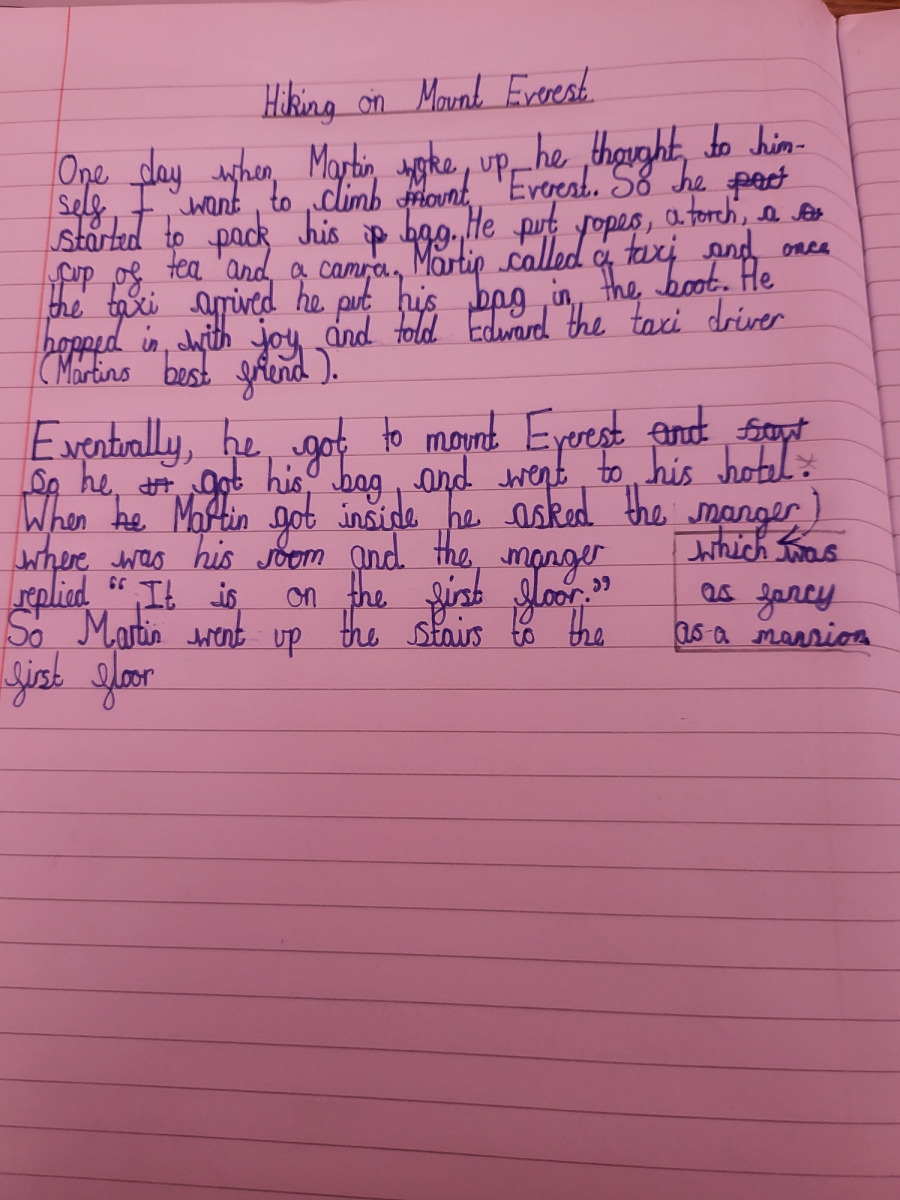 Hiking on Mount Everest
One day when Martin woke up he thought to him-
self I want to climb mount Everest. So he
started to pack his bag. He put ropes, a torch, a
cup of tea and a camra. Martin called a taxi and once
the taxi arrived he put his bag in the boot. He
hopped in with joy and told Edward the taxi driver
(Martins best friend).
Eventually, he got to mount Everest and saw
So he got his bag and went to his hotel.*
When he Martin got inside he asked the manger)
where was his room and the manger
replied “It is on the first floor.”
So Martin went up the stairs to the
first floor
which was
as fancy
as a mansion